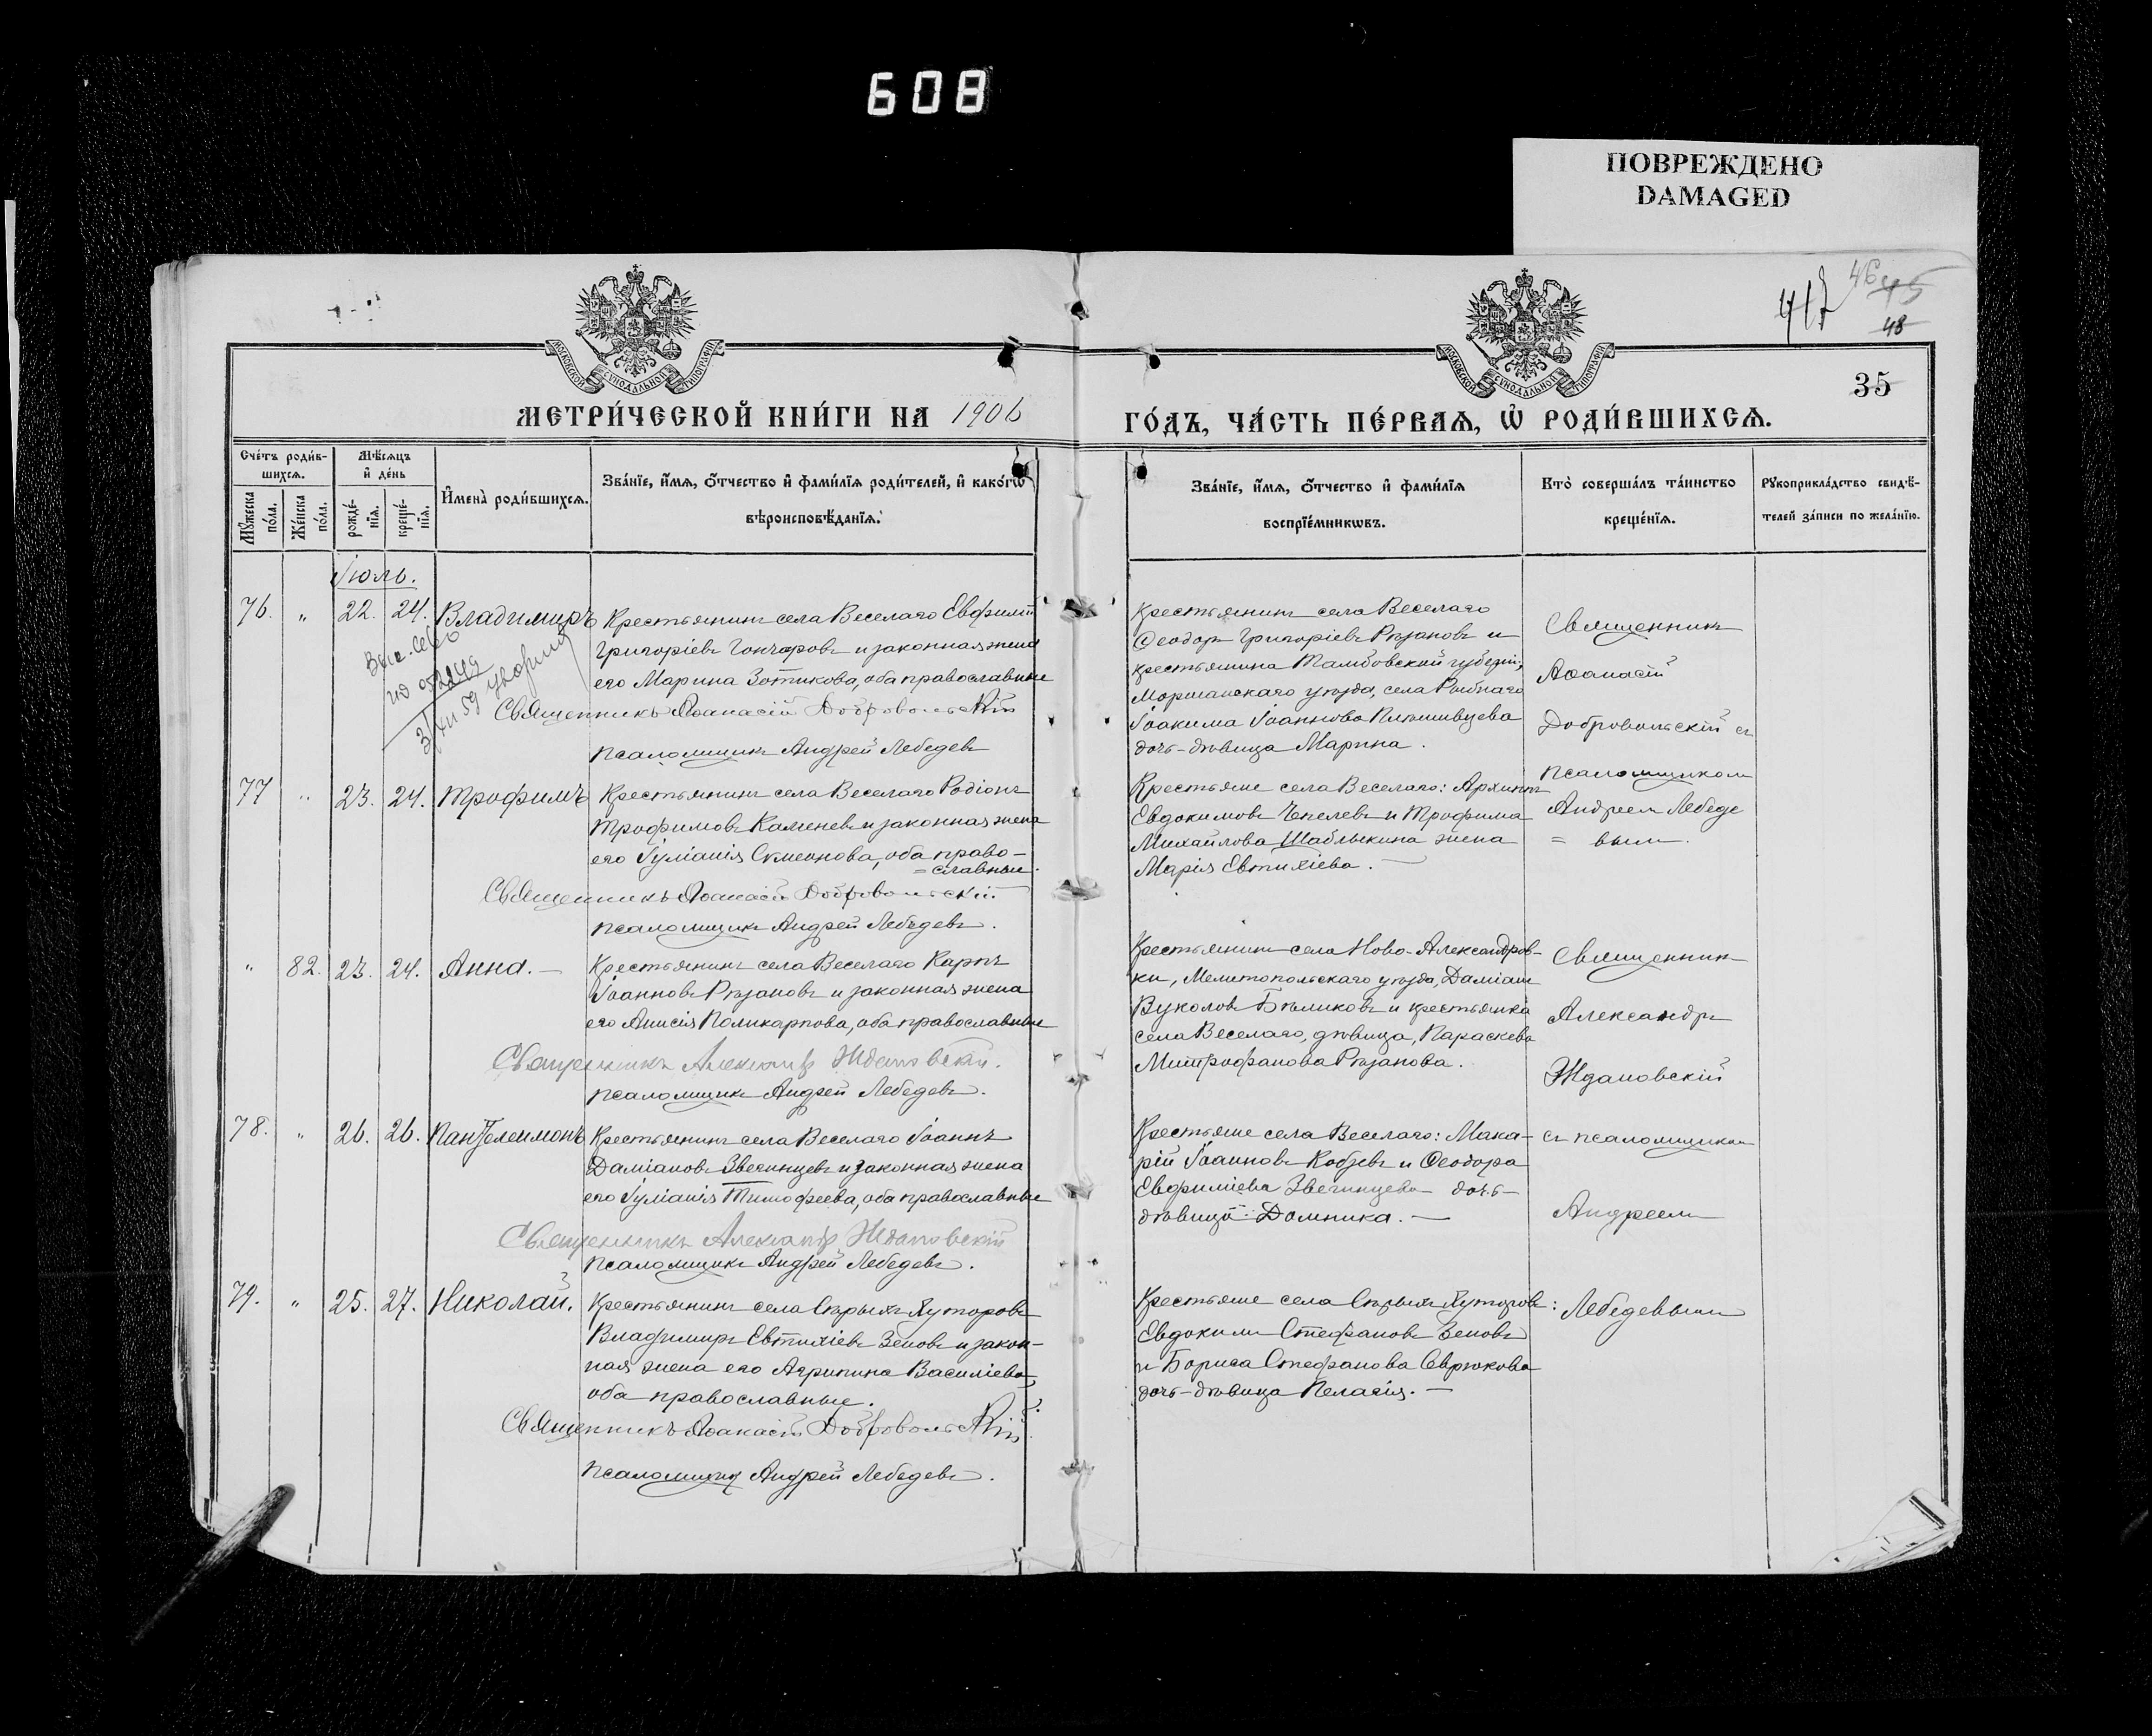 608
ПОВРЕЖДЕНО
DAMAGED
417
46
45
48
35
МОСКОВСКОЙ СУНОДАЛЬНОЙ ТИПОГРАФІИ
МОСКОВСКОЙ СУНОДАЛЬНОЙ ТИПОГРАФІИ
МЕТРИ́ЧЕСКОЙ КНИ́ГИ НА 1906
ГО́ДЪ, ЧА́СТЬ ПЕ́РВАѦ, Ѡ҆ РОДИ́ВШИХСѦ.
Сче́тъ роди́в-
шихсѧ.
Мꙋ́жеска по́ла.
Же́нска по́ла.
Мѣ́сѧцъ
и҆ де́нь
рожде́-
нїѧ.
креще́-
нїѧ.
И҆мена̀ роди́вшихсѧ.
Зва́нїе, и҆́мѧ, ѻ҆́тчество и҆ фами́лїѧ роди́телей, и҆ како́гѡ
вѣроисповѣ́данїѧ.
Зва́нїе, и҆́мѧ, ѻ҆́тчество и҆ фами́лїѧ
воспрїе́мникѡвъ.
Кто̀ соверша́лъ та́инство
креще́нїѧ.
Рꙋкоприкла́дство свидѣ́-
телей за́писи по жела́нїю.
Іюль.
76. „ 22. 24. Владимиръ
Крестьянинъ села Веселаго Евфимій
Григоріевъ Гончаровъ и законная жена
его Марина Зотикова, оба православные
Священникъ Аѳанасій Добровольскій
Псаломщикъ Андрей Лебедевъ
Крестьянинъ села Веселаго
Ѳеодоръ Григоріевъ Рѣзановъ и
крестьянина Тамбовской губерніи,
Моршанскаго уѣзда, села Рыбнаго
Іоакима Іоаннова
дочь-дѣвица Марина.
Священникъ
Аѳанасій
Добровольскій съ
псаломщикомъ
Андреемъ Лебеде
= вымъ.
77 „ 23. 24. Трофимъ
Крестьянинъ села Веселаго Родіонъ
Трофимовъ Каменевъ и законная жена
его Іуліанія Симеонова, оба право-
= славные.
Священникъ Аѳанасій Добровольскій.
Псаломщикъ Андрей Лебедевъ.
Крестьяне села Веселаго: Архиппъ
Евдокимовъ Чепелевъ и Трофима
Михайлова Шаблыкина жена
Марія Евтихіева. —
„ 82. 23. 24. Анна. —
Крестьянинъ села Веселаго Карпъ
Іоанновъ Рѣзановъ и законная жена
его Анисія Поликарпова, оба православные
Священникъ Александръ Ждановскій.
Псаломщикъ Андрей Лебедевъ.
Крестьянинъ села Ново-Александров-
ки, Мелитопольскаго уѣзда, Даміанъ
Вуколовъ Бѣликовъ и крестьянка
села Веселаго, дѣвица, Параскева
Митрофанова Рѣзанова.
Священникъ
Александръ
Ждановскій
78. „ 26. 26. Пантелеимонъ
Крестьянинъ села Веселаго Іоаннъ
Даміановъ Звегинцевъ и законная жена
его Іуліанія Тимофеева, оба православные
Священникъ Александръ Ждановскій
Псаломщикъ Андрей Лебедевъ.
Крестьяне села Веселаго: Мака-
рій Іоанновъ Кобзевъ и Ѳеодора
Евфиміева Звегинцева дочь-
дѣвица Домника. —
съ псаломщикомъ
Андреемъ
79. „ 25. 27. Николай.
Крестьянинъ села Сѣрыхъ Хуторовъ
Владимиръ Евтихіевъ Зеновъ и закон-
ная жена его Агрипина Василіева,
оба православные.
Священникъ Аѳанасій Добровольскій.
Псаломщикъ Андрей Лебедевъ.
Крестьяне села Сѣрыхъ Хуторовъ:
Евдокимъ Стефановъ Зеновъ
и Бориса Стефанова Севрюкова
дочь-дѣвица Пелагія. —
Лебедевымъ